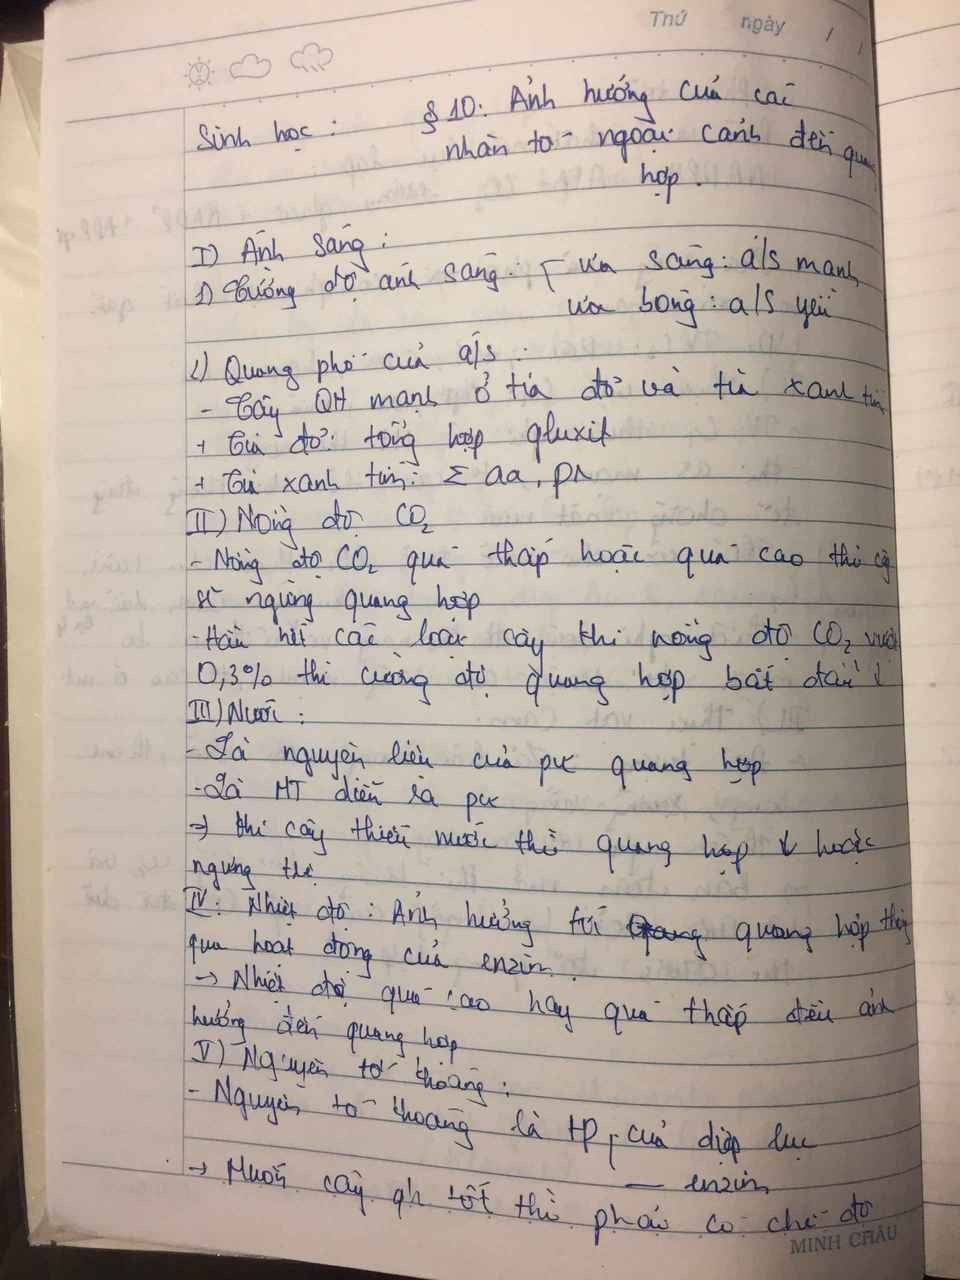 Thứ ngày / /
Sinh học : § 10: Ảnh hưởng của các
nhân tố ngoại cảnh đến quang
hợp.
I) Ánh sáng :
1) Cường độ ánh sáng ưa sáng: a/s mạnh
ưa bóng: a/s yếu
2) Quang phổ của a/s :
- Cây QH mạnh ở tia đỏ và tia xanh tím
+ Tia đỏ: tổng hợp gluxit
+ Tia xanh tím: Σ aa, pr
II) Nồng độ CO2
- Nồng độ CO2 quá thấp hoặc quá cao thì cây
sẽ ngừng quang hợp
- Hầu hết các loài cây thì nồng độ CO2 vượt
0,3% thì cường độ quang hợp bắt đầu ↓
III) Nước :
- Là nguyên liệu của pư quang hợp
- Là MT diễn ra pư
→ khi cây thiếu nước thì quang hợp ↓ hoặc
ngưng trệ
IV: Nhiệt độ : Ảnh hưởng tới quang hợp thông
qua hoạt động của enzim.
→ Nhiệt độ quá cao hay quá thấp đều ảnh
hưởng đến quang hợp
V) Nguyên tố khoáng :
- Nguyên tố khoáng là tp của diệp lục
— enzim
→ Muốn cây qh tốt thì phải có chế độ
MINH CHÂU